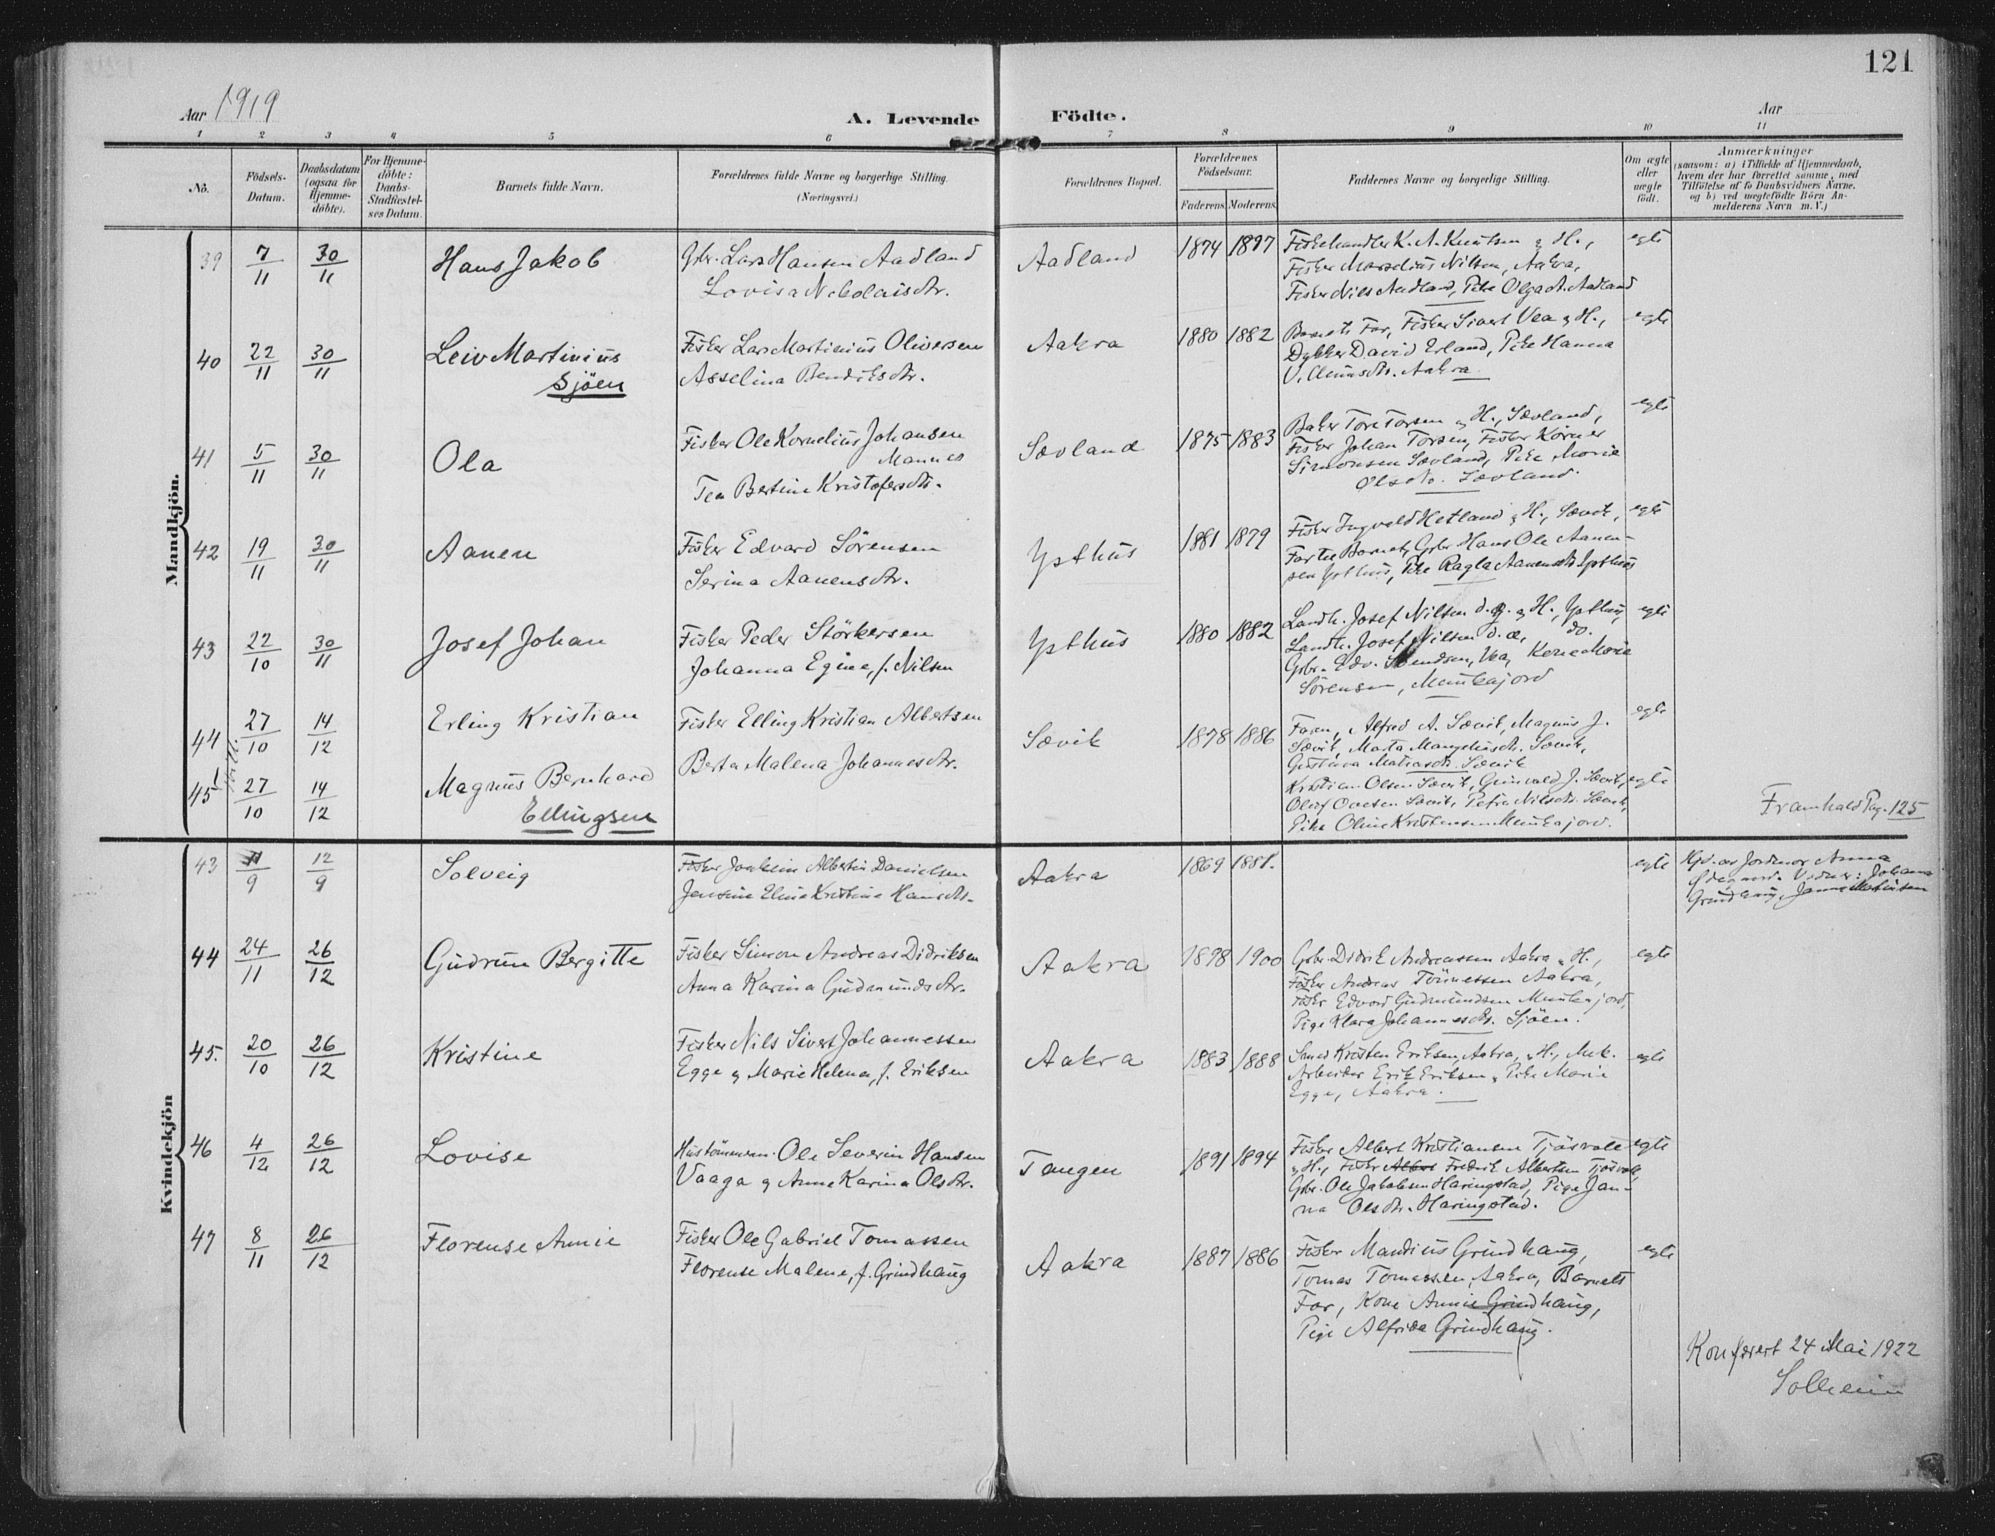 121
Aar 1919
A. Levende Födte.
Aar
1 2 3 4 5 6 7 8 9 10 11
No.
Födsels-Datum.
Daabsdatum (ogsaa for Hjemme-döbte).
For Hjemme-döbte: Daabs-Stadfæstel-ses Datum.
Barnets fulde Navn.
Forældrenes fulde Navne og borgerlige Stilling.
(Næringsvei.)
Forældrenes Bopæl.
Forældrenes Födselsaar.
Faderens Moderens
Faddernes Navne og borgerlige Stilling.
Om ægte eller uægte födt.
Anmærkninger
(saasom: a) i Tilfælde af Hjemmedaab,
hvem der har forrettet samme, med
Tilföielse af to Daabsvidners Navne.
og b) ved uægtefödte Börn An-
melderens Navn m. V.)
Mandkjön.
39 7/11 30/11 Hans Jakob
Gbr. Lars Hansen Aadland
Lovisa Nikolaisdtr.
Aadland 1874 1897
Fiskehandler K. A. Knutsen & H.,
Fisker Marselius Nilsen, Aakra,
Fisker Nils Aadland, Pike Olga A. Aadland
egte
40 22/11 30/11 Leiv Martinius
Sjöen
Fisker Lars Martinius Oliversen
Asselina Bendiksdtr.
Aakra 1880 1882
Barnets Far, Fisker Sivert Vea & H.,
Dykker David Erland, Pike Hanna
Aakra
egte
41 5/11 30/11 Ola
Fisker Ole Kornelius Johansen
Mannes
Tea Bertine Kristofersdtr.
Sævland 1875 1883
Baker Tore Torsen & H., Sævland,
Fisker Johan Torsen, Fisker Körner
Simonsen Sævland, Pike Marie
Olsdtr. Sævland.
egte
42 19/11 30/11 Aanen
Fisker Edvard Sörensen
Serina Aanensdtr.
Ysthus 1881 1879
Fisker Ingvald Hetland & H., Sævik,
Far til Barnet, Gbr. Hans Ole Aanen-
sen Ysthus, Pike Ragla Aanensdtr. Ysthus
egte
43 22/10 30/11 Josef Johan
Fisker Peder Störkersen
Johanna Egine, f. Nilsen
Ysthus 1880 1882
Landh. Josef Nilsen d.y. & H., Ysthus,
Landh. Josef Nilsen d.æ., do.
Gbr. Edv. Svendsen, Vea, Kone Marie
Sörensen, Munkajord
egte
44 27/10 14/12 Erling Kristian
Fisker Elling Kristian Albertsen
Berta Malena Johannesdtr.
Sævik 1878 1886
Faren, Alfred A. Sævik, Magnus J.
Sævik, Marta Mangelusdtr. Sævik,
Gustava Matiasdtr. Sævik
egte
45 27/10 14/12 Magnus Bernhard
Ellingsen
Kristian Olsen Sævik, Grunvald J. Sævik,
Olaf Ovesen Sævik, Petra Nilsdtr. Sævik,
Pike Oline Kristensen Munkajord.
egte
Framhald Pag. 125
Kvindekjön
43 11/9 12/9 Solveig
Fisker Joakim Albertin Danielsen
Jensine Eline Kristine Hansdtr.
Aakra 1869 1881.
egte
Hjd. av Jordmor Anna
Ödegaard. Vidner: Johanna
Grindhaug, Janna Matinsen
44 24/11 26/12 Gudrun Bergitte
Fisker Simon Andreas Didriksen
Anna Karina Gudmundsdtr.
Aakra 1898 1900
Gbr. Didrik Andreassen Aakra & H.,
Fisker Andreas Tönnessen Aakra,
Fisker Edvard Gudmundsen Munkajord,
Pige Klara Johannesdtr. Sjöen.
egte
45. 20/10 26/12 Kristine
Fisker Nils Sivert Johannessen
Egge & Marie Helena, f. Eriksen
Aakra 1883 1888
Smed Kristen Eriksen, Aakra, & H., Mek.
Arbeider Erik Eriksen & Pike Marie
Egge, Aakra.
egte
46 4/12 26/12 Lovise
Hustömmerm. Ole Severin Hansen
Vaaga & Anne Karina Olsdtr.
Tangen 1891 1894
Fisker Albert Kristiansen Tjösvold
& H., Fisker Albert Fredrik Albertsen Tjösvold,
Gbr. Ole Jakobsen Haringstad, Pige Jan-
na Olsdtr. Haringstad.
egte
47 8/11 26/12 Florense Annie
Fisker Ole Gabriel Tomassen
Florense Malene, f. Grindhaug
Aakra 1887 1886
Fisker Mandius Grindhaug,
Tomas Tomassen, Aakra, Barnets
Far, Kone Annie Grindhaug,
Pige Alfrida Grindhaug.
egte
Konferert 24 Mai 1922
Solheim